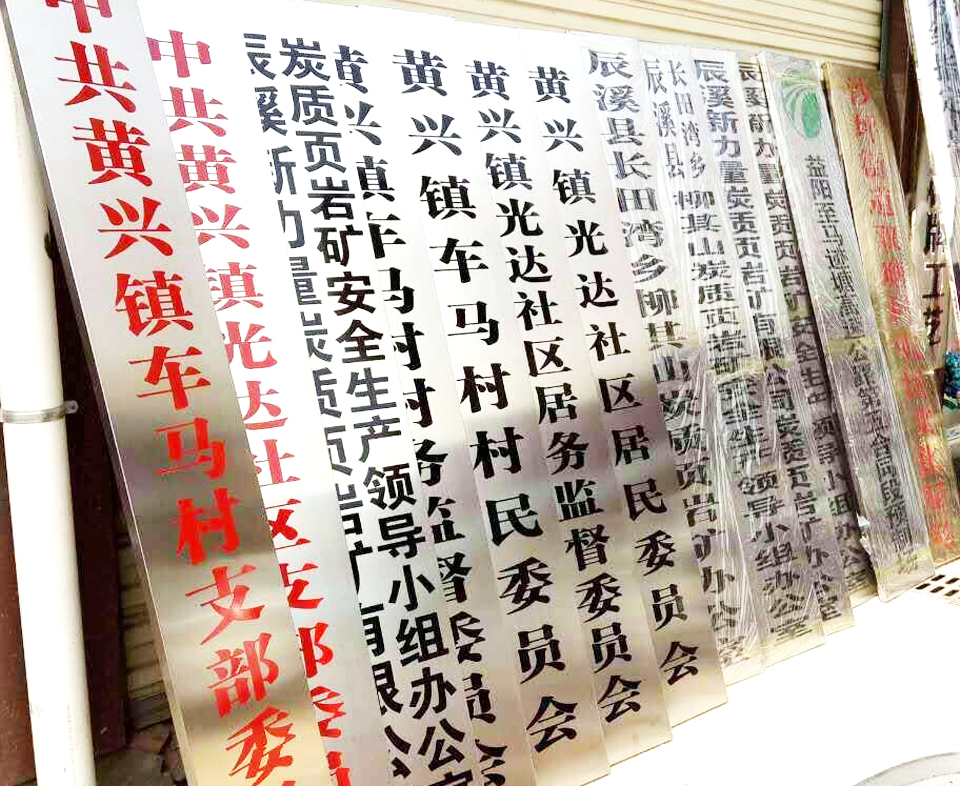 中共黄兴镇车马村支部委
中共黄兴镇光达社区支部委员
辰溪新力量炭质页岩矿有限公
炭质页岩矿安全生产领导小组办公室
黄兴镇车马村村务监督委员会
黄兴镇车马村村民委员会
黄兴镇光达社区居务监督委员会
黄兴镇光达社区居民委员会
辰溪县长田湾乡柳其山炭质页岩矿办公室
辰溪县
长田湾乡柳其山炭质页岩矿安全生产领导小组办公室
辰溪新力量炭质页岩矿有限公司炭质页岩矿办公室
辰溪新力量炭质页岩矿安全生产领导小组办公室
益阳至马迹塘高
公路第
合同段预制场
牌工艺